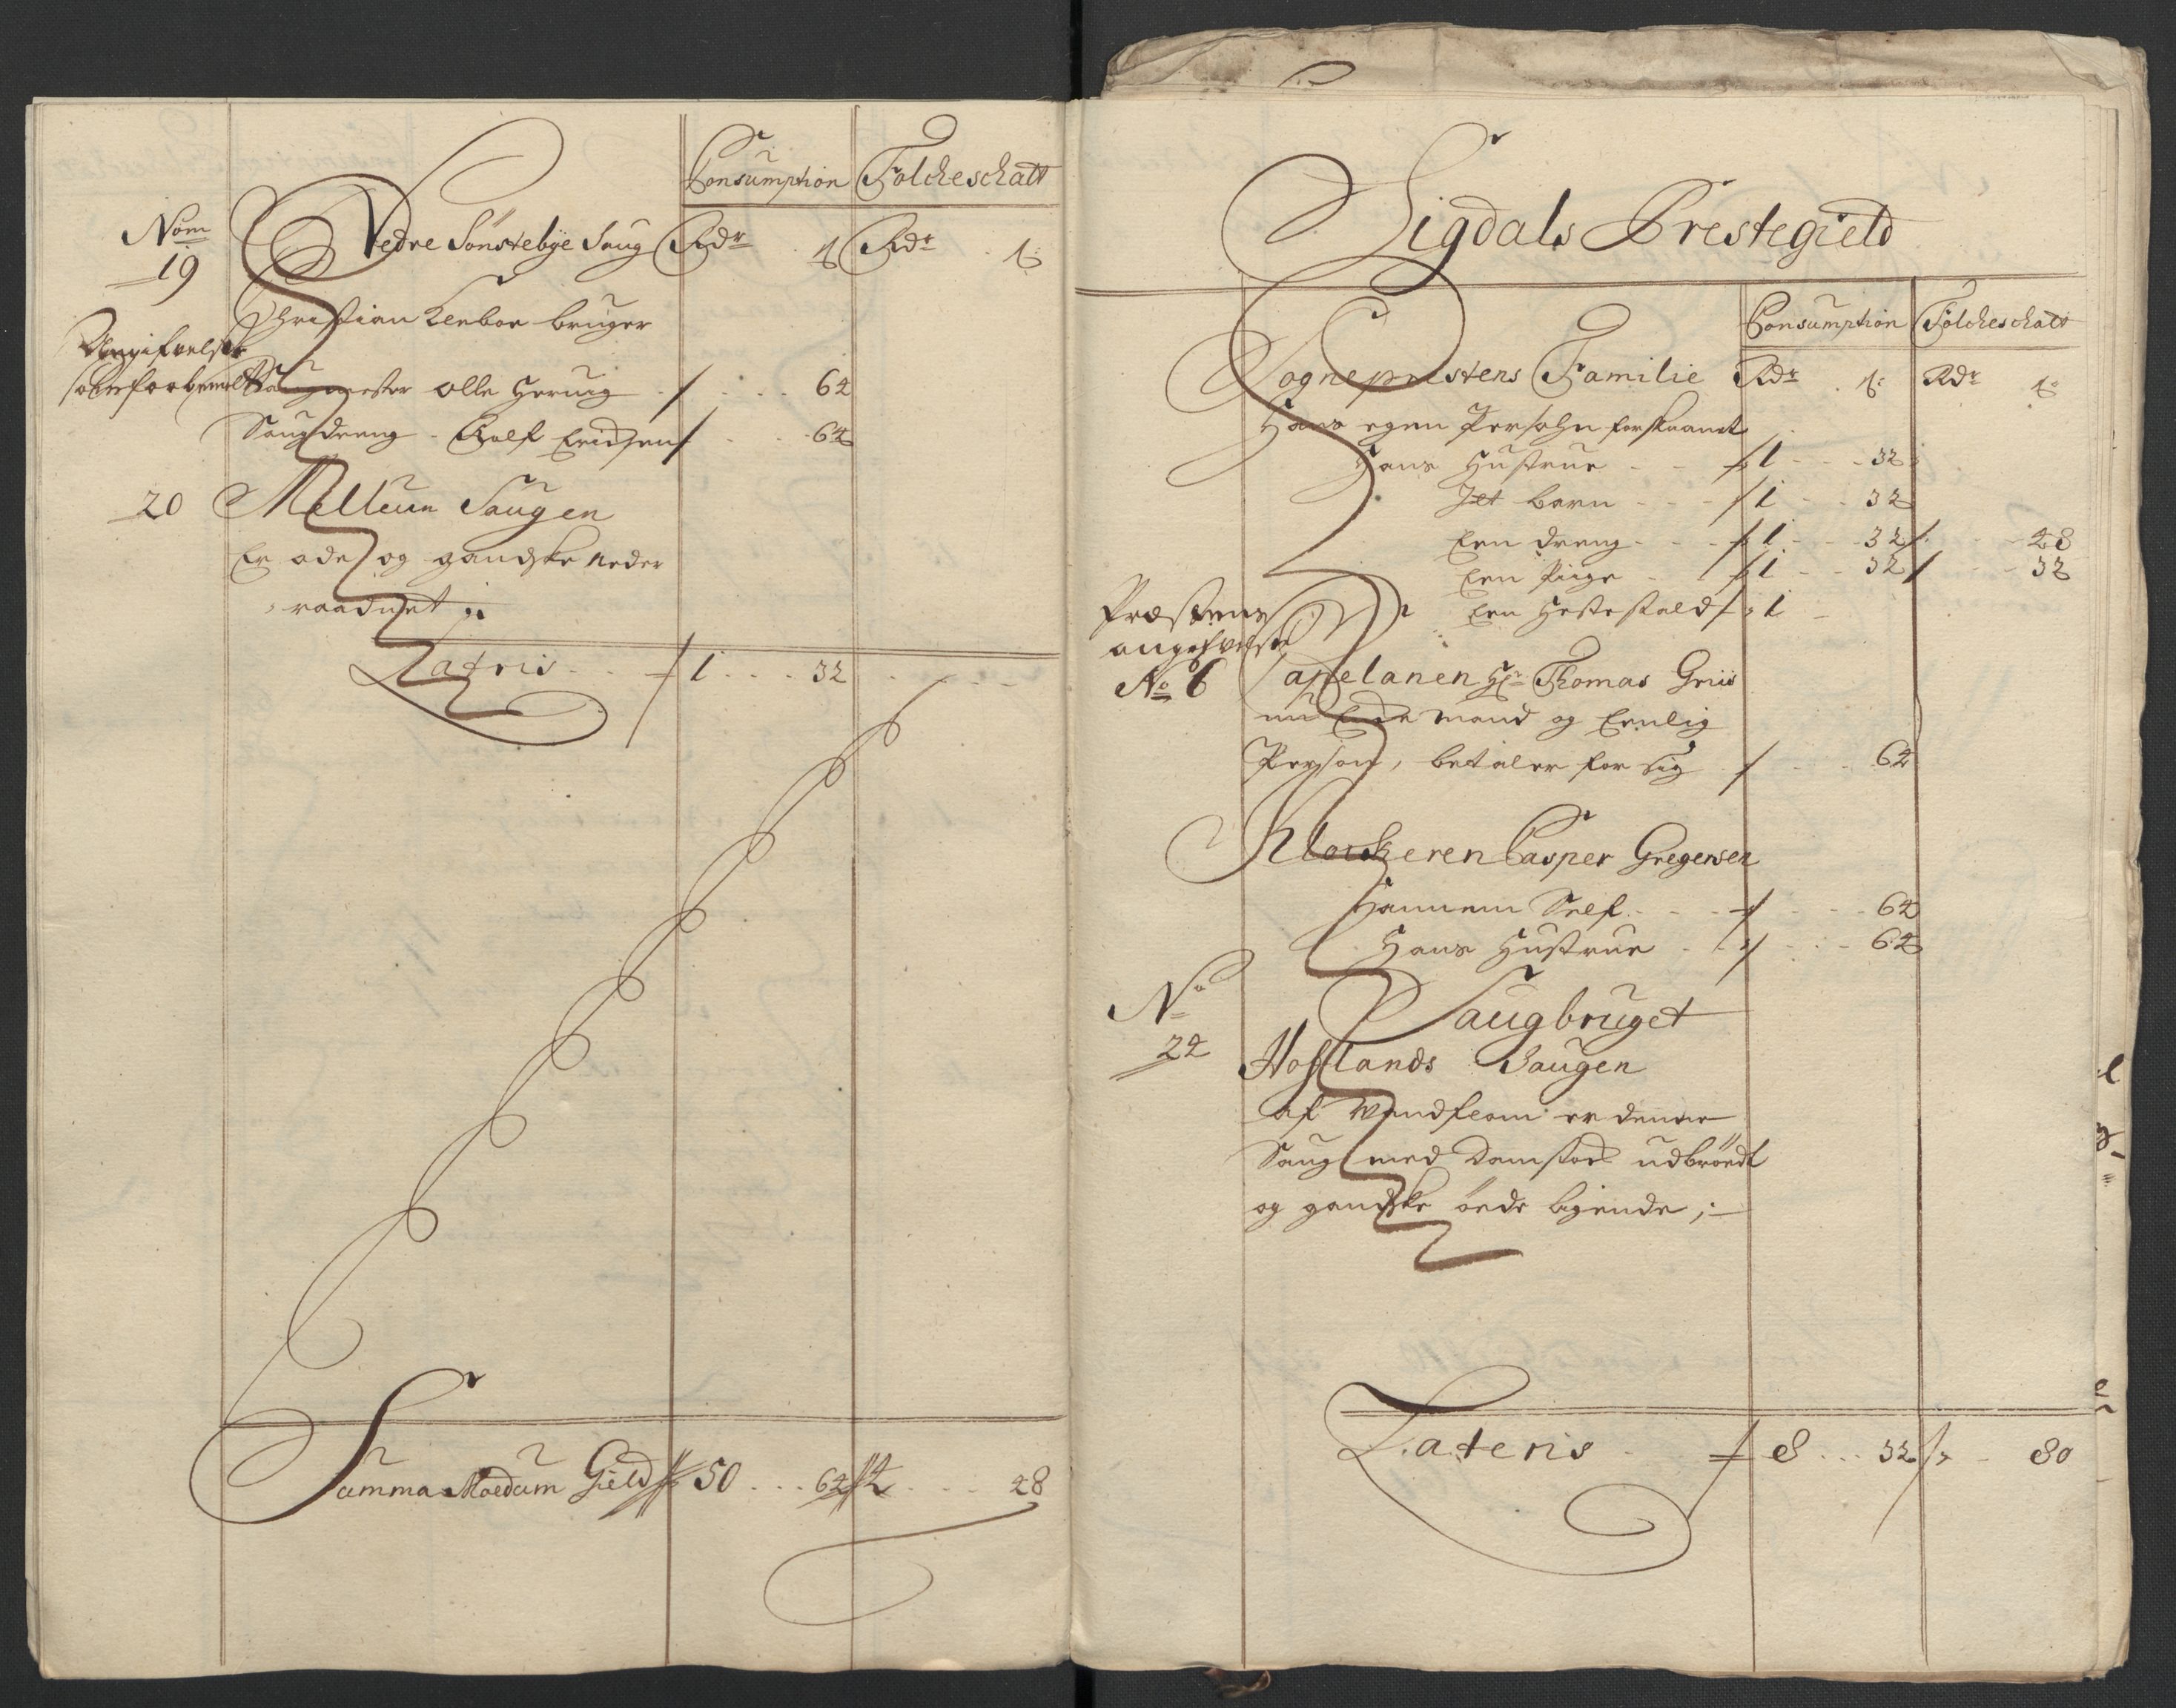 Consumption Folcheschatt
Nom
19
Nedre Sönstebÿe Saug Rdr ß Rdr ß
Christian bruger
Angifvelse
Saugmester Olle 64
Saugdreng Rolf Erichsen 64
20 Mellum Saugen
Er øde og gandske neder
raadnet
Lateris 1 32
Summa Moedum Gield 50 64 4 48
Sigdals Prestegield
Consumption Folcheschatt
Sogneprestens Familie Rdr ß Rdr ß
Hans egen Persohn forskaanet
Hans Hustrue 1 32
Jet barn 1 32
Een dreng 1 32 48
Een Piige 1 32 32
Een Hestestald 1
Præstens
angifvelse
No 6
Capelanen Hr Thomas Griis
nu Enke Mand og Eenlig
Person, betaler for sig 64
Klockeren Casper Gregersen
Hannem Self 64
Hans Hustrue 64
No
22
Saugbruget
Hofflands Saugen
af Vandfloom er denne
Saug med Damstoed udbrödt
og gandske öede ligende ;
Lateris 8 32 80